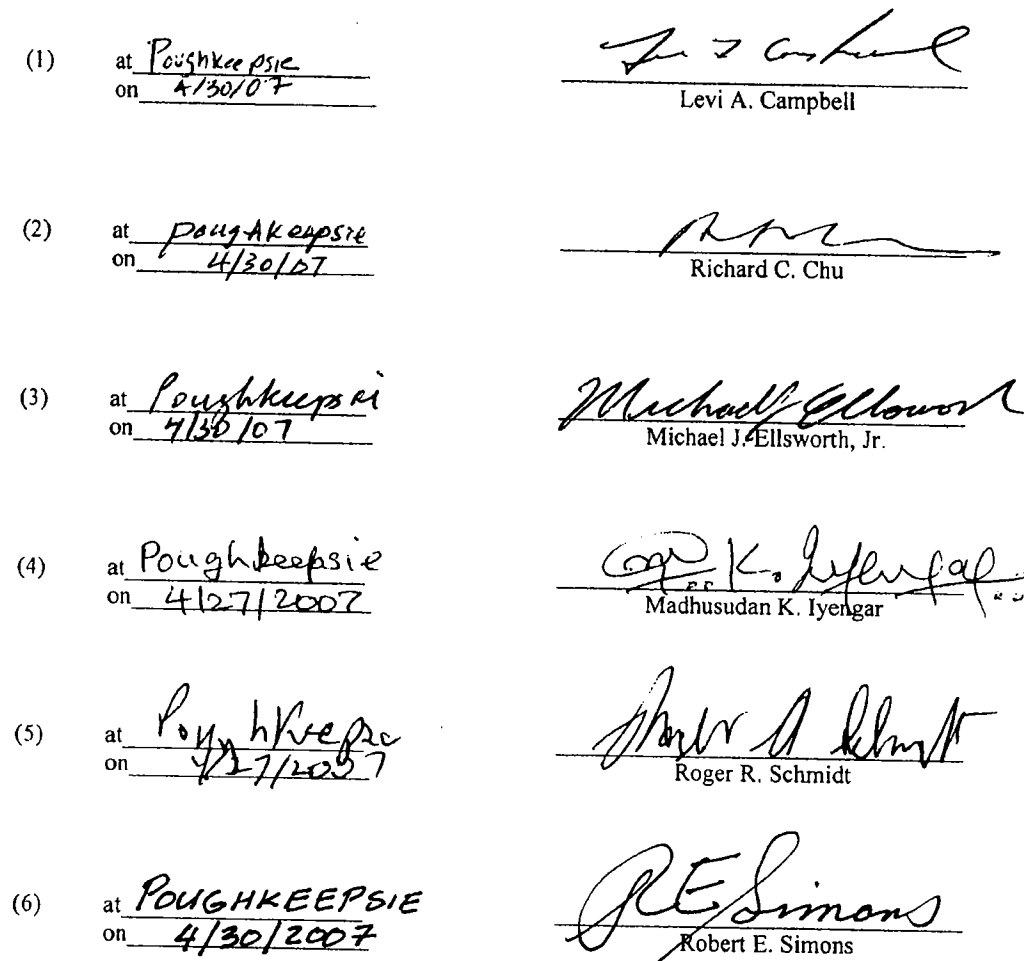 (1) at Poughkeepsie
on 4/30/07
Levi A. Campbell
(2) at Poughkeepsie
on 4/30/07
Richard C. Chu
(3) at Poughkeepsi
on 4/30/07
Michael J. Ellsworth
Michael J. Ellsworth, Jr.
(4) at Poughkeepsie
on 4/27/2007
K. Iyengar
Madhusudan K. Iyengar
(5) at
on 4/27/2007
Roger R. Schmidt
(6) at POUGHKEEPSIE
on 4/30/2007
R E Simons
Robert E. Simons